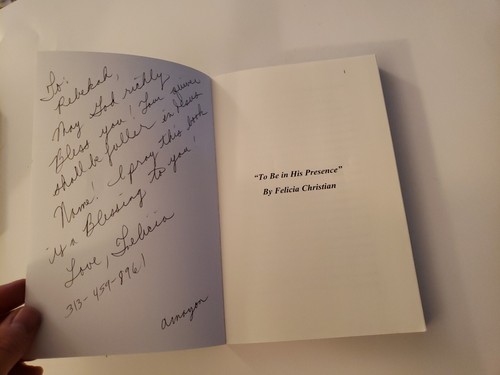 To:
Rebekah,
May God richly
Bless you! Your
shall be fuller in Jesus
Name! I pray this book
is a Blessing to you!
Love, Felicia
313-459-8961
amazon
1
"To Be in His Presence"
By Felicia Christian